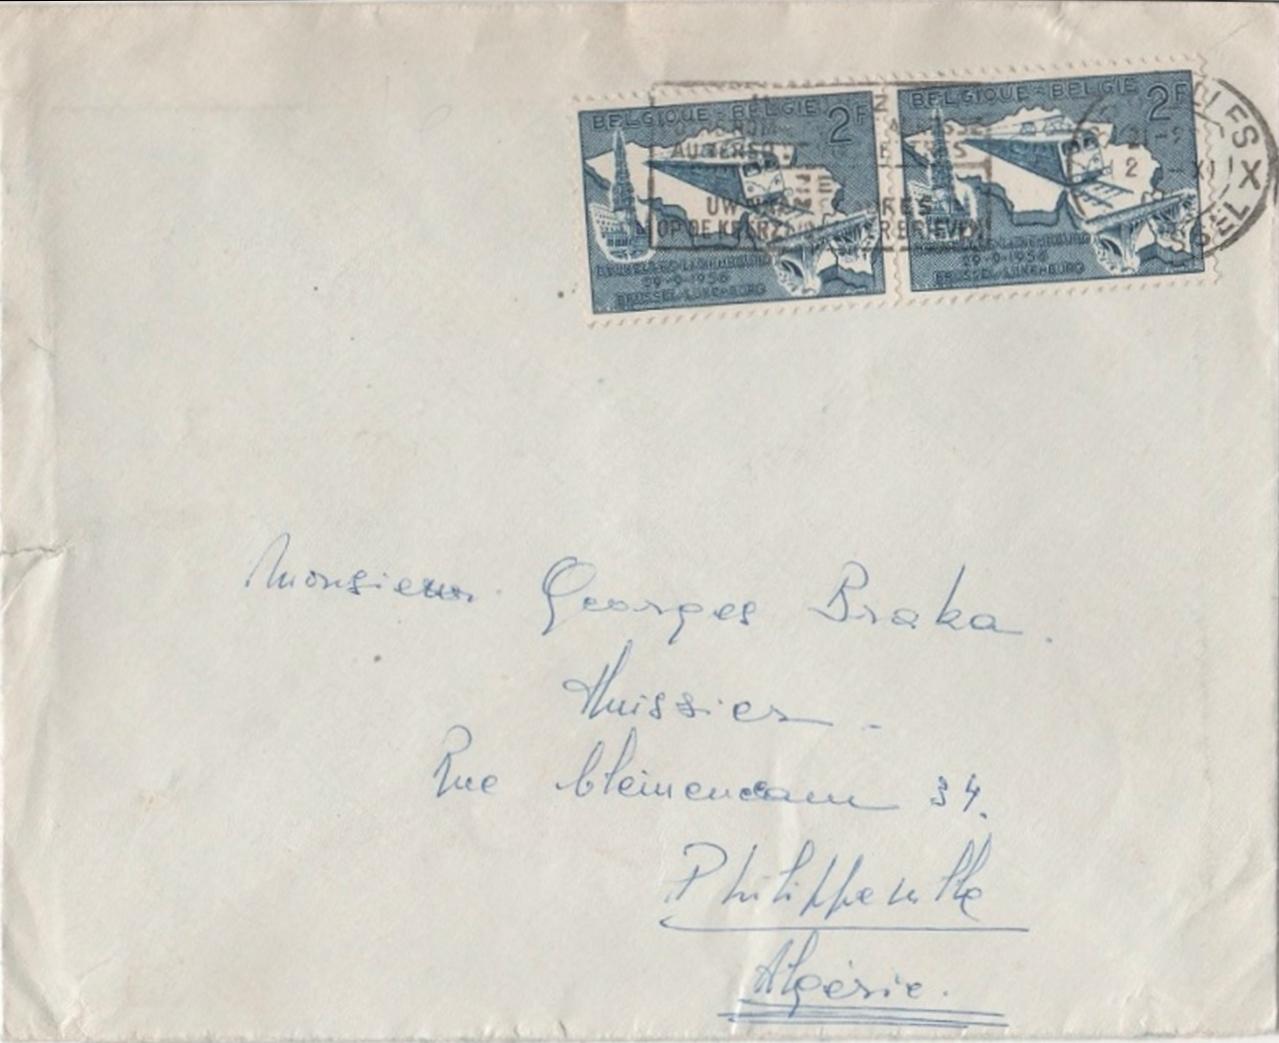 BELGIQUE-BELGIE 2F
BRUXELLES-LUXEMBOURG
29-9-1956
BRUSSEL-LUXEMBURG
BELGIQUE-BELGIE 2F
BRUXELLES-LUXEMBOURG
29-9-1956
BRUSSEL-LUXEMBURG
NOM
AU VERSO
UW NAAM
OP DE KEERZ
ER BRIEVEN
X
XI
Monsieur Georges Braka.
Huissier.
Rue Clemenceau 34.
Philippeville
Algérie.